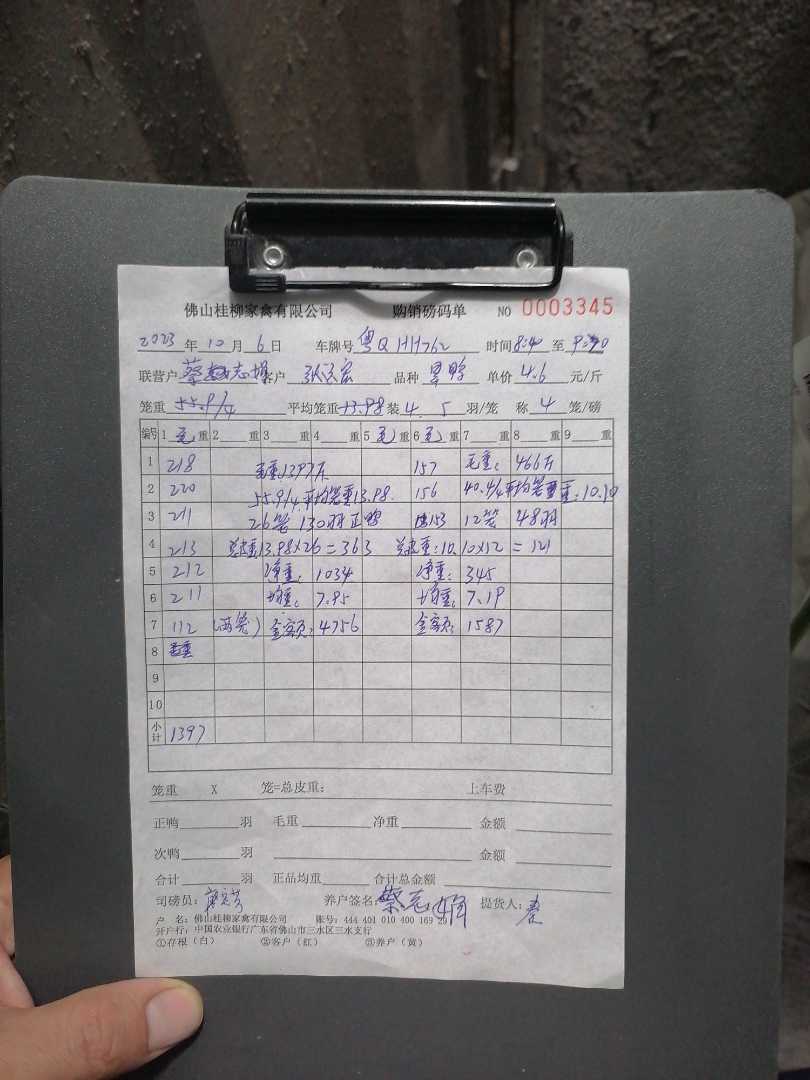 佛山桂柳家禽有限公司 购销磅码单 NO 0003345
2023 年 10 月 6 日 车牌号 粤Q HH762 时间 8:40 至
联营户 蔡志 客户 品种 单价 4.6 元/斤
笼重 55.9/4 平均笼重 13.98 装 4. 5 羽/笼 称 4 笼/磅
编号 1 毛 重 2 重 3 重 4 重 5 毛 重 6 毛 重 7 重 8 重 9 重
1 218 毛重:1397斤 157 毛重: 466斤
2 220 55.9/4平均笼重13.98. 156 40.4/4平均笼重:10.10
3 211 26笼 130羽正鸭 153 12笼 48羽
4 213 总皮重13.98×26=363 总皮重:10.10×12=121
5 212 净重: 1034 净重: 345
6 211 均重: 7.95 均重: 7.19
7 112 (两笼) 金额: 4756 金额: 1587
8
9
10
小计 1397
笼重 X 笼=总皮重: 上车费
正鸭 羽 毛重 净重 金额
次鸭 羽 金额
合计 羽 正品均重 合计总金额
司磅员: 养户签名: 蔡志 提货人:
户 名: 佛山桂柳家禽有限公司 账号: 444 401 010 400 169 29
开户行: 中国农业银行广东省佛山市三水区三水支行
①存根(白) ②客户(红) ③养户(黄)